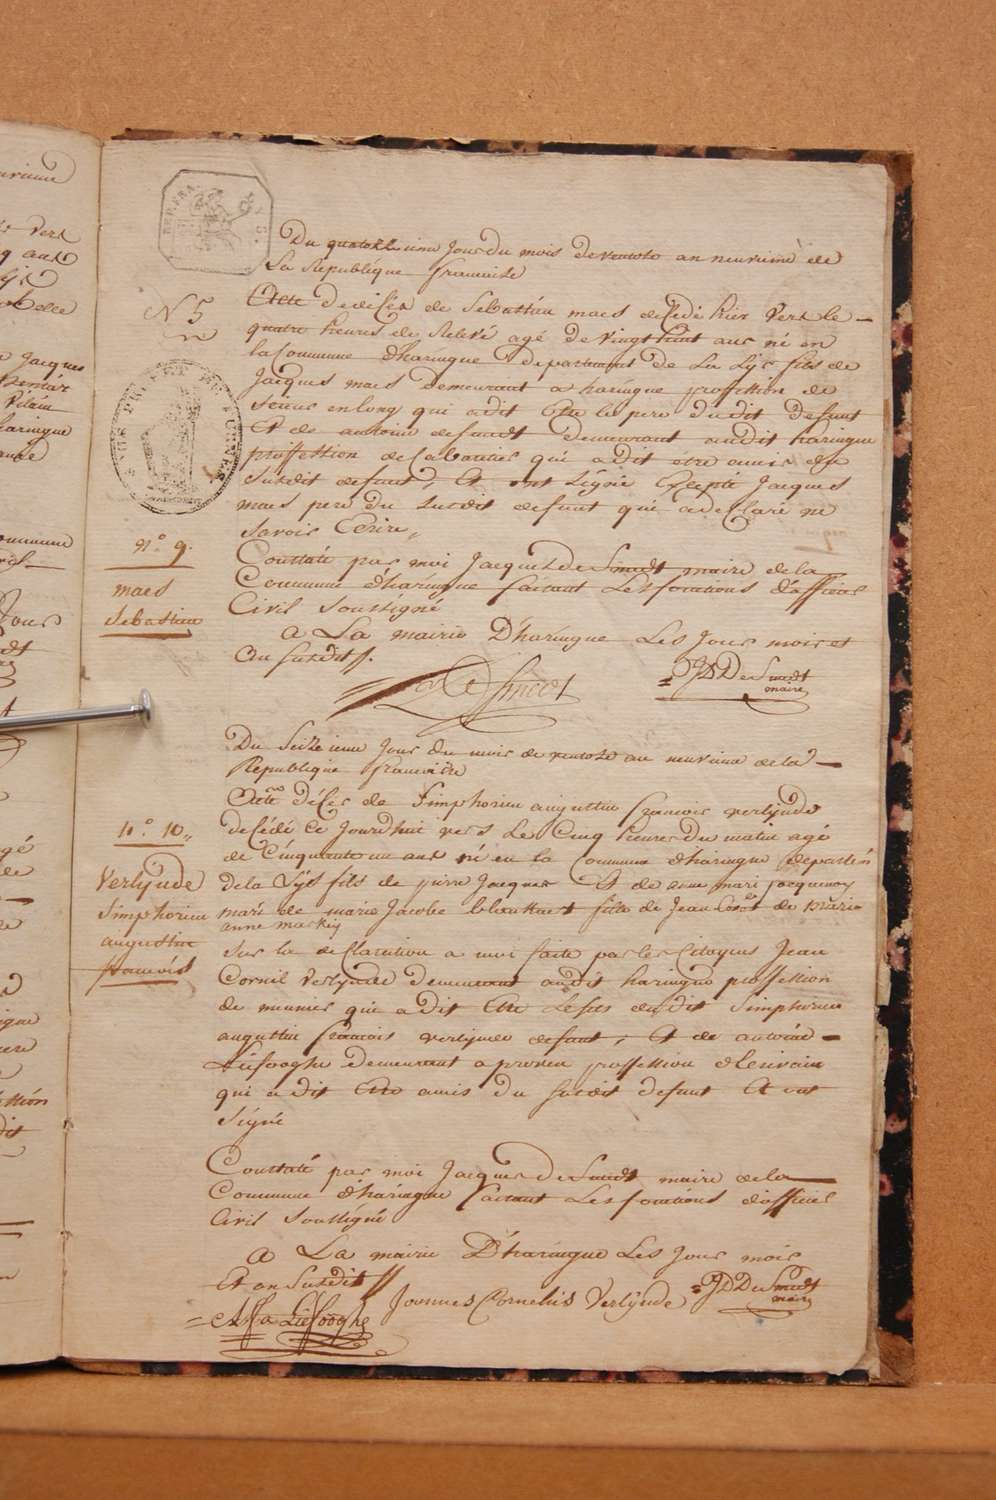 REP. FRA.
N 5
Du quatorzieme Jour du mois de ventose an neuvieme de
La Republique francaise
Acte de décés de Sebastian maes decédé hier vers le
quatre heures de Relevé agé de vingt huit ans né en
la Commune d'haringue departement de La Lys fils de
Jacques maes demeurant a haringue proffession de
Scieur en long qui a dit Etre le pere dudit defunt
Et de antoine desmedt demeurant audit haringue
proffession de Cabaretier qui a dit étre amis du
Susdit defunt, Et ont Signé Excepté Jacques
maes pere du Susdit defunt qui a declaré ne
Savoir Ecrire,,
n.° 9.
maes
Sebastian
Constaté par moi Jacques De Smedt maire de la
Commune d'haringue faisant Les fonctions d'officier
Civil Soussigné
A La mairie D'haringue Les Jour mois et
an Susdit
JJD De Smedt
maire
Du Seizieme Jour du mois de ventose an neuvieme de la
Republique francaise
Acte décés de Simphorien augustin francois verlynde
decédé Ce Jourdhui vers Le Cinq heures du matin agé
de Cinquante un ans né en la Commune d'haringue departem
de la Lys fils de pierre Jacques Et de anne mari
mari de marie Jacobe fille de Jean de marie
anne
n.° 10,,
Verlynde
Simphorien
augustin
francois
Sur la declaration a moi faite par les Citoyens Jean
Cornil verlynde demeurant audit haringue proffession
de meunier qui a dit Etre Le fils dudit Simphorien
augustin francois verlynde defunt, Et de antoine
Liefooghe demeurant a proven proffession d'Ecrivain
qui a dit Etre amis du Susdit defunt Et ont
Signé
Constaté par moi Jacques De Smedt maire de la
Commune d'haringue faisant Les fonctions d'officier
Civil Soussigné
A La mairie D'haringue Les Jour mois
Et an Susdit
Joannes Cornelius Verlynde
JJD De Smedt
maire
Liefooghe